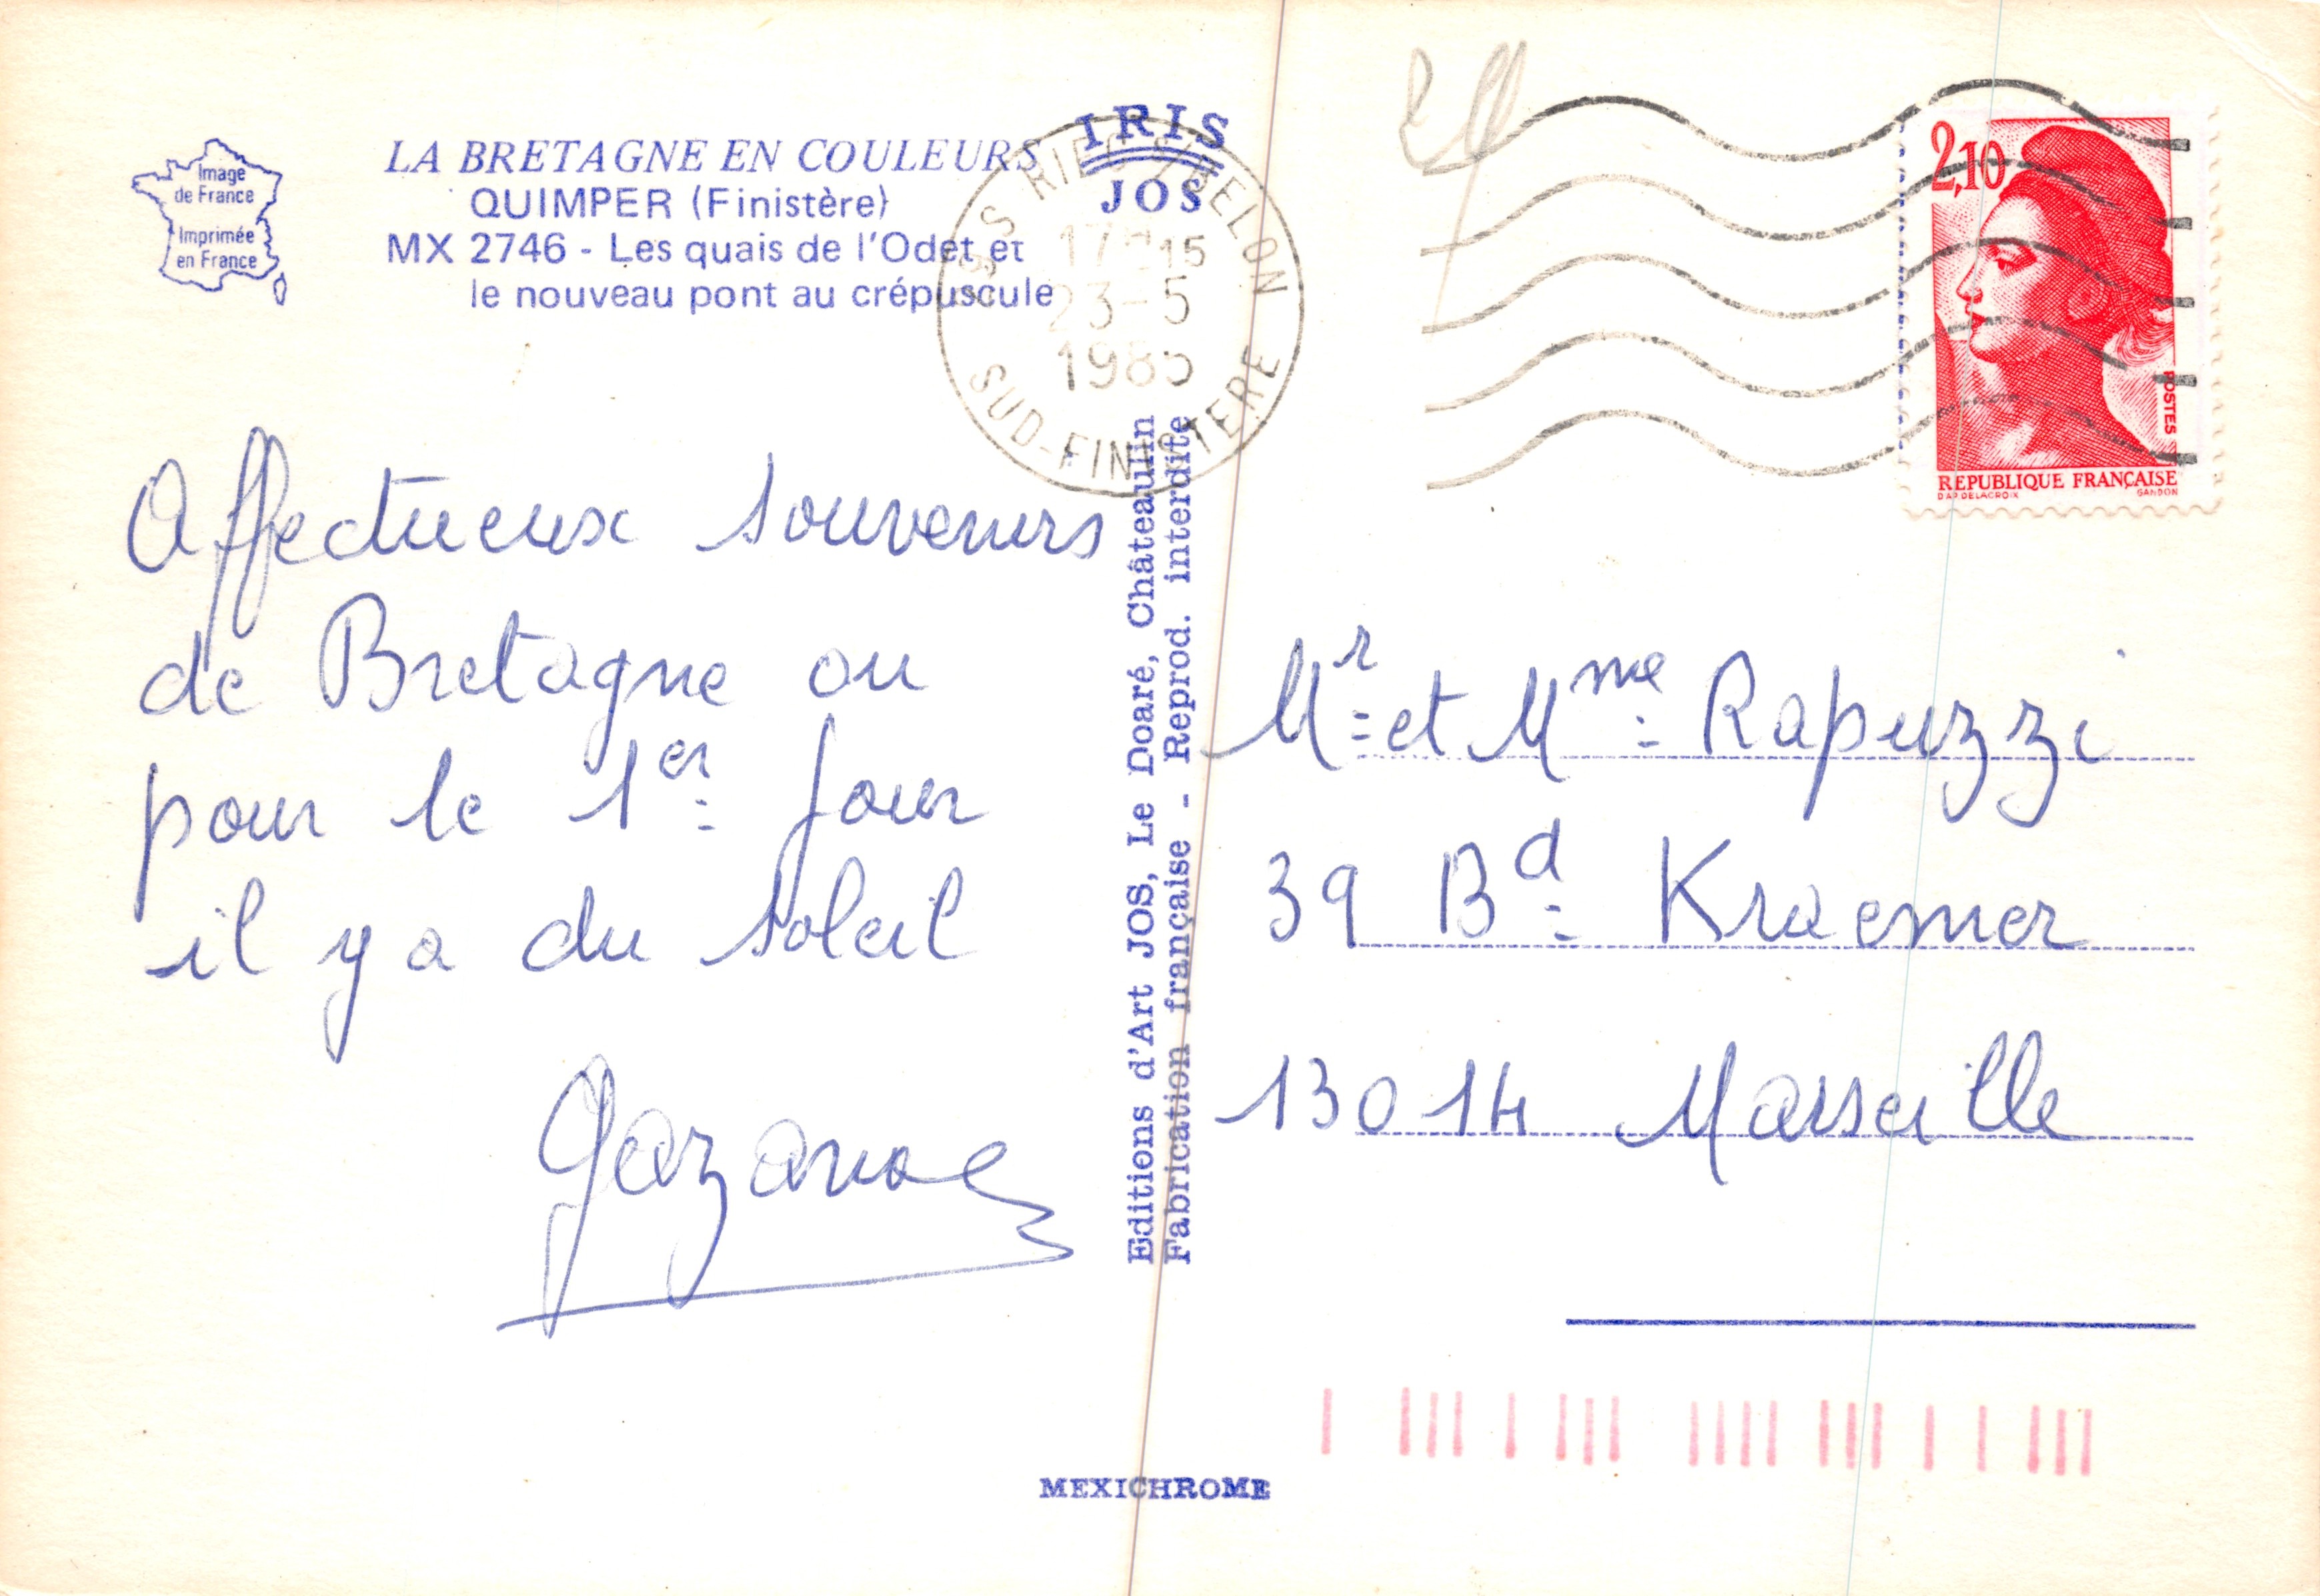 Image
de France
Imprimée
en France
LA BRETAGNE EN COULEURS
QUIMPER (Finistère)
MX 2746 - Les quais de l'Odet et
le nouveau pont au crépuscule
IRIS
JOS
RIEC S/BELON
17H15
23-5
1985
SUD-FINISTERE
2,10
POSTES
REPUBLIQUE FRANÇAISE
D'AP. DELACROIX GANDON
Affectueux souvenirs
de Bretagne ou
pour le 1er jour
il y a du soleil
Editions d'Art JOS, Le Doaré, Châteaulin
Fabrication française - Reprod. interdite
Mr et Mme Rapuzzi
39 Bd Kraemer
13014 Marseille
MEXICHROME